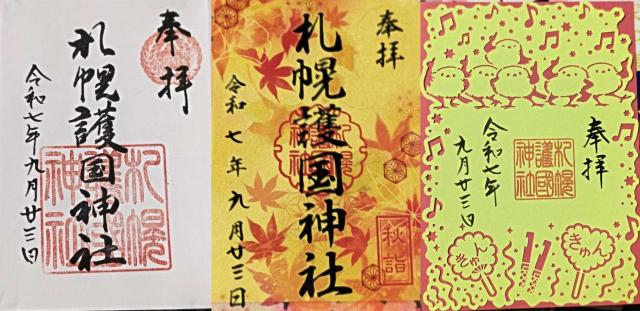 奉拝
札幌護国神社
令和七年九月廿三日
札幌護國神社
奉拝
札幌護国神社
令和七年九月廿三日
秋詣
奉拝
札幌護國神社
令和七年
九月廿三日
きゅん
きゅん